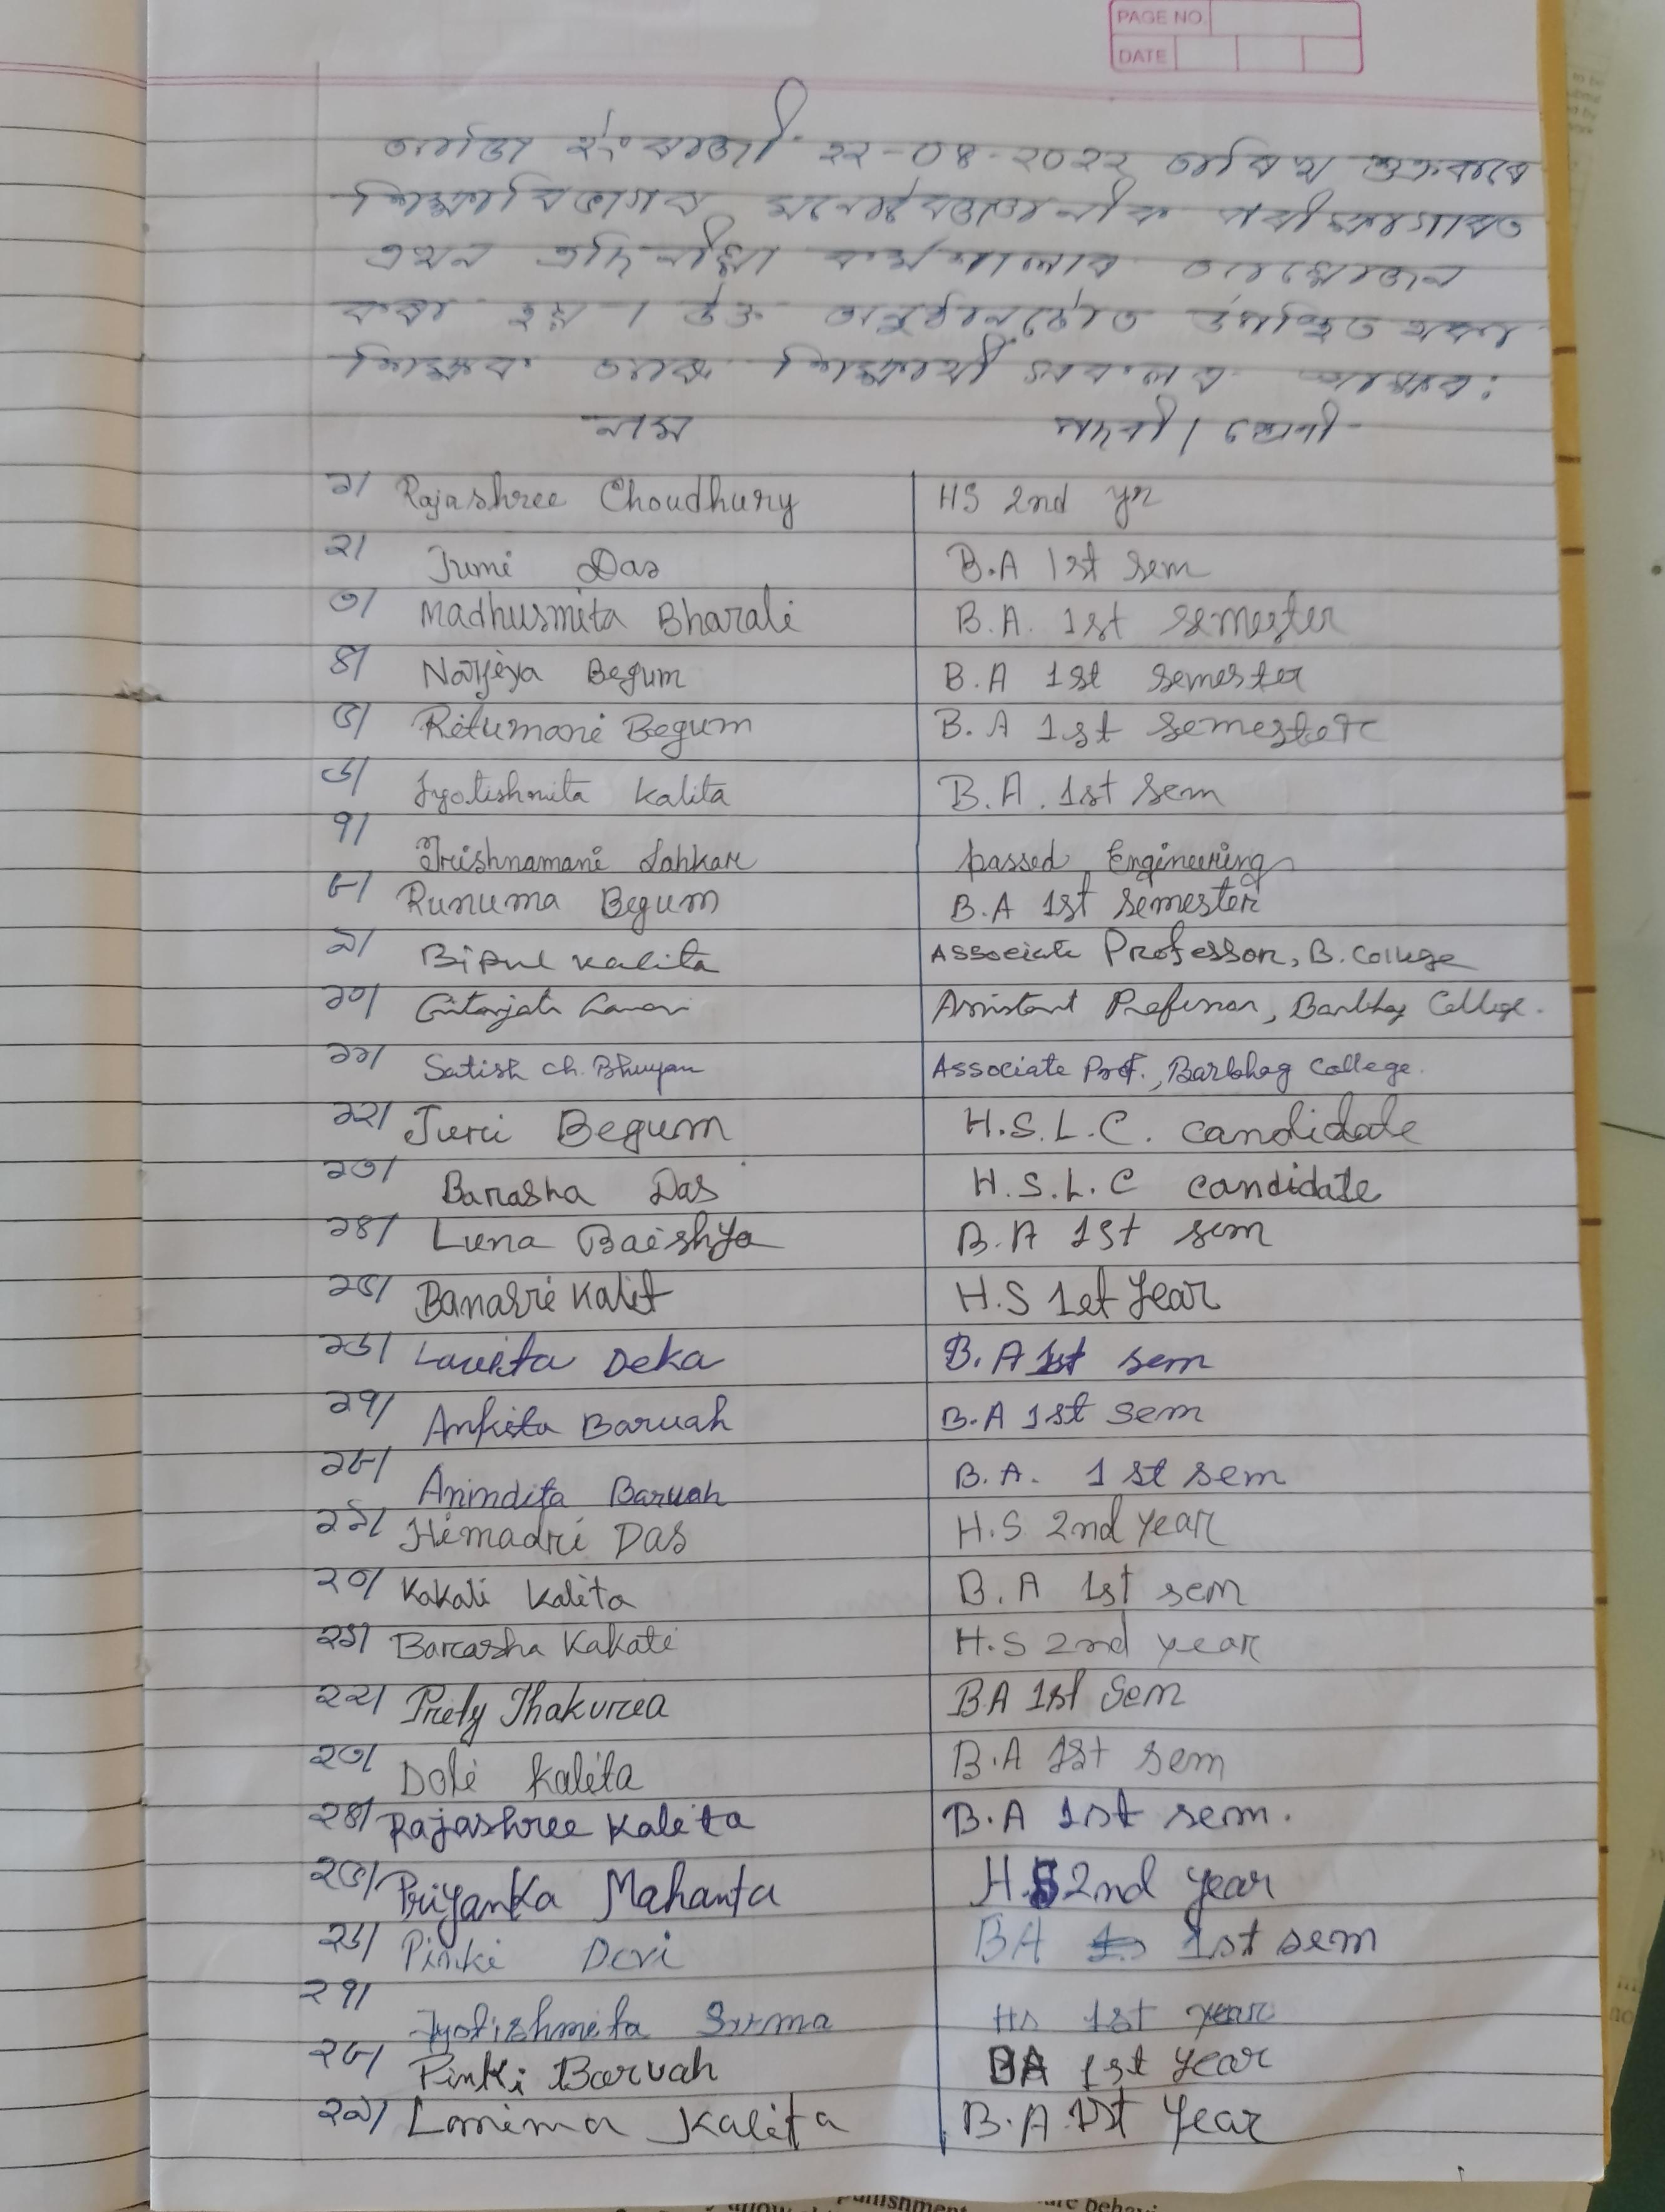 PAGE NO.
DATE
আজি ইং ৰাজী ২২-০৪-২০২২ তাৰিখ শুক্ৰবাৰে
শিক্ষা বিভাগৰ মনোবৈজ্ঞানিক পৰীক্ষাগাৰত
এখন এদিনীয়া কৰ্মশালাৰ আয়োজন
কৰা হয়। উক্ত অনুষ্ঠানটোত উপস্থিত থকা
শিক্ষক আৰু শিক্ষাৰ্থী সকলৰ স্বাক্ষৰ:
নাম পদবী / শ্ৰেণী
১/ Rajashree Choudhury HS 2nd yr
২/ Jumi Das B.A 1st Sem
৩/ Madhusmita Bharali B.A. 1st semester
৪/ Narjiya Begum B.A 1st Semester
৫/ Ritumoni Begum B.A 1st Semester
৬/ Jyotishmita Kalita B.A. 1st Sem
৭/ Trishnamani Lahkar passed Engineering
৮/ Runuma Begum B.A 1st Semester
৯/ Bipul Kalita Associate Professor, B. College
১০/ Gitanjali Assistant Professor, Barbhag College.
১১/ Satish Ch. Bhuyan Associate Prof., Barbhag College.
১২/ Juri Begum H.S.L.C. candidate
১৩/ Barasha Das H.S.L.C candidate
১৪/ Luna Baishya B.A 1st sem
১৫/ Banasri Kalit H.S 1st Year
১৬/ Deka B.A 1st sem
১৭/ Ankita Baruah B.A 1st Sem
১৮/ Anindita Baruah B.A. 1st sem
১৯/ Himadri Das H.S 2nd year
২০/ Kakali Kalita B.A 1st sem
২১/ Barasha Kakati H.S 2nd year
২২/ Prety Thakuria B.A 1st Sem
২৩/ Doli Kalita B.A 1st sem
২৪/ Rajashree Kalita B.A 1st sem.
২৫/ Priyanka Mahanta H.S 2nd year
২৬/ Pinki Devi BA 1st sem
২৭/ Jyotishmita Sarma HS 1st year
২৮/ Pinki Baruah BA 1st year
২৯/ Kalita B.A 1st Year